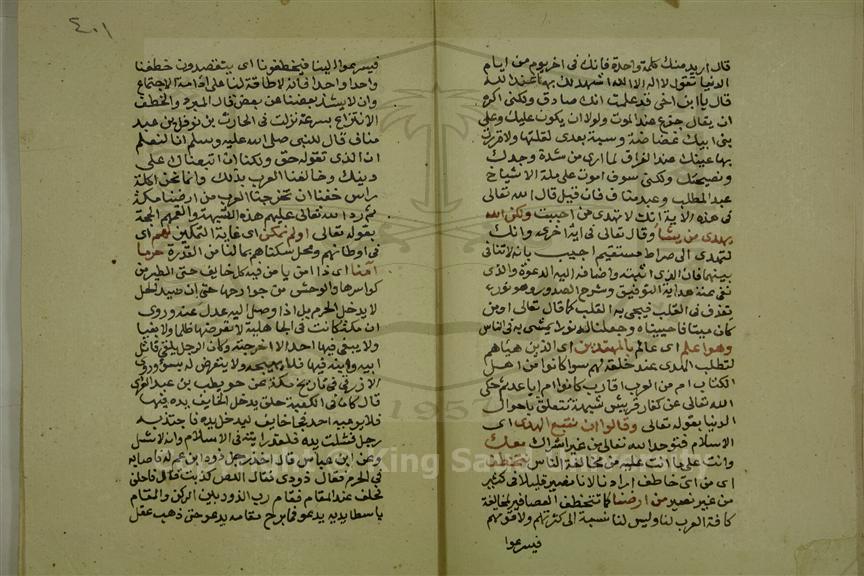 قال اريد منك كلمة واحدة فانك فى اخر يوم من ايام
الدنيا تقول لا اله الا الله اشهد لك بها عند الله
قال يا ابن اخى قد علمت انك صادق ولكنى اكره
ان يقال جزع عند الموت ولولا ان يكون عليك وعلى
بنى ابيك غضاضة وسبة بعدى لقلتها ولاقررت
بها عينك عند الفراق لما ارى من شدة وجدك
ونصيحتك ولكنى سوف اموت على ملة الاشياخ
عبد المطلب وعبد مناف فان قيل قال الله تعالى
فى هذه الاية انك لا تهدى من احببت ولكن الله
يهدى من يشا وقال تعالى فى اية اخرى وانك
لتهدى الى صراط مستقيم اجيب بانه لا تنافى
بينهما فان الذى اثبته واضافه اليه الدعوة والذى
نفى عنه هداية التوفيق وشرح الصدور وهو نور
يقذف فى القلب فيحيى به القلب كما قال تعالى اومن
كان ميتا فاحييناه وجعلنا له نورا يمشى به فى الناس
وهو اعلم اى عالم بالمهتدين اى الذين هياهم
لتطلب الهدى عند خلقه لهم سوا كانوا من اهل
الكتاب ام من العرب اقارب كانوا ام اباعد ثم حكى
الله تعالى عن كفار قريش شبهة تتعلق باحوال
الدنيا بقوله تعالى وقالوا ان نتبع الهدى اى
الاسلام فنوحد الله تعالى من غير اشراك معك
وانت على ما انت عليه من مخالفة الناس نتخطف
اى من اى خاطف ارادنا لانا نصير قليلا فى كثير
من غير نصير من ارضنا كما تتخطف العصافير لمخالفة
كافة العرب لنا وليس لنا نسبة الى كثرتهم ولا قوتهم
فيسرعوا
٤٠١
فيسرعوا الينا فيخطفونا اى يتقصدون خطفنا
واحدا واحدا فانه لا طاقة لنا على ادامة الاجتماع
وان لا يشذ بعضنا عن بعض قال المبرد والخطف
الانتزاع بسرعة نزلت فى الحارث بن نوفل بن عبد
مناف قال للنبى صلى الله عليه وسلم انا لنعلم
ان الذى تقوله حق ولكنا ان اتبعناك على
دينك وخالفنا العرب بذلك وانما نحن اكلة
راس خفنا ان تخرجنا العرب من ارضنا مكة
ثم رد الله تعالى عليهم هذه الشبهة والقمهم الحجة
بقوله تعالى اولم نمكن اى غاية التمكين لهم اى
فى اوطانهم ومحل سكناهم بما لنا من القدرة حرما
امنا اى ذا امن يامن فيه كل خايف حتى الطير من
كواسرها والوحش من جوارحها حتى ان صيد الحل
لا يدخل الحرم بل اذا وصل اليه عدل عنه وروى
ان مكة كانت فى الجاهلية لا تقر فيها ظلما ولا بغيا
ولا يبغى فيها احد الا اخرجته وكان الرجل يلقى قاتل
ابيه وابنه فيها فلا يهيجه ولا يتعرض له بسو وروى
الازرقى فى تاريخ مكة عن حويطب بن عبد العزى
قال كانت فى الكعبة حلق يدخل الخايف يده فيها
فلا يريبه احد فجا خايف ليدخل يده فاجتذبه
رجل فشلت يده فلقد رايته فى الاسلام وانه لاشل
وعن ابن عباس قال اخذ رجل ذود ابن عم له فاصابه
فى الحرم فقال ذودى فقال اللص كذبت قال فاحلف
فحلف عند المقام فقام رب الذود بين الركن والمقام
باسطا يديه يدعو فما برح مقامه يدعو حتى ذهب عقل
1957
King Saud University